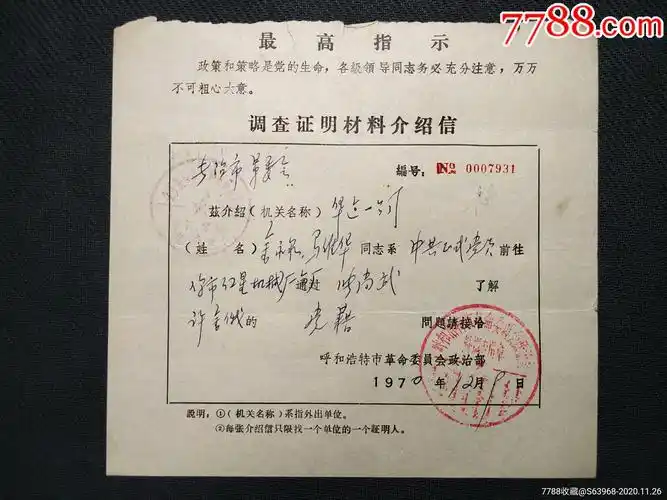 7788.com
最高指示
政策和策略是党的生命，各級領导同志务必充分注意，万万
不可粗心大意。
调查证明材料介绍信
长治市革委会
編号：№ 0007931
茲介紹（机关名称）
（姓 名） 馬 华 同志系 中共正式党员 前往
你市红星机械厂 陈尚武 了解
的 党籍 問題請接洽
呼和浩特市革命委員会政治部
1970年12月9日
說明：①（机关名称）系指外出单位。
②每张介紹信只限找一个单位的一个証明人。
7788收藏@S63968-2020.11.26